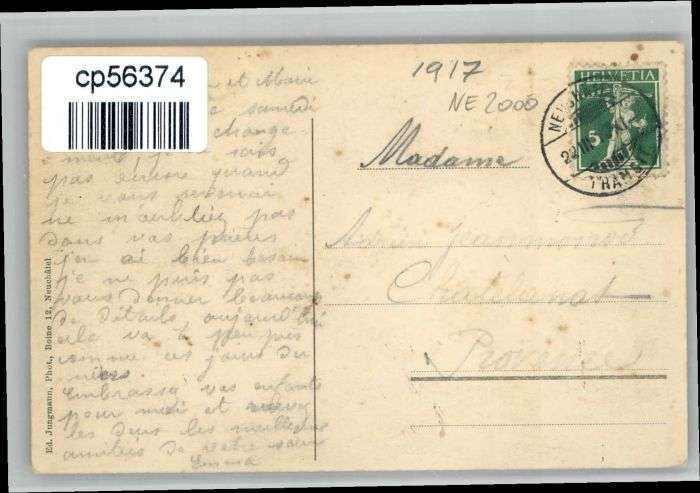 cp56374
et Marie
samedi
change
je sais
pas encore quand
je vous
ne m'oubliez pas
dans vos prières
j'en ai bien besoin
je ne puis pas
vous donner beaucoup
de détails aujourd'hui
elle va à peu près
comme ces jours der
niers.
Embrassé vos enfants
pour moi et
les deux les meilleures
amitiés de votre sœur
Emma
Ed. Jungmann, Phot., Boine 12, Neuchâtel.
1917
NE 2000
HELVETIA
5
TRANS
Madame
Adrien Jeanmonod
Provence